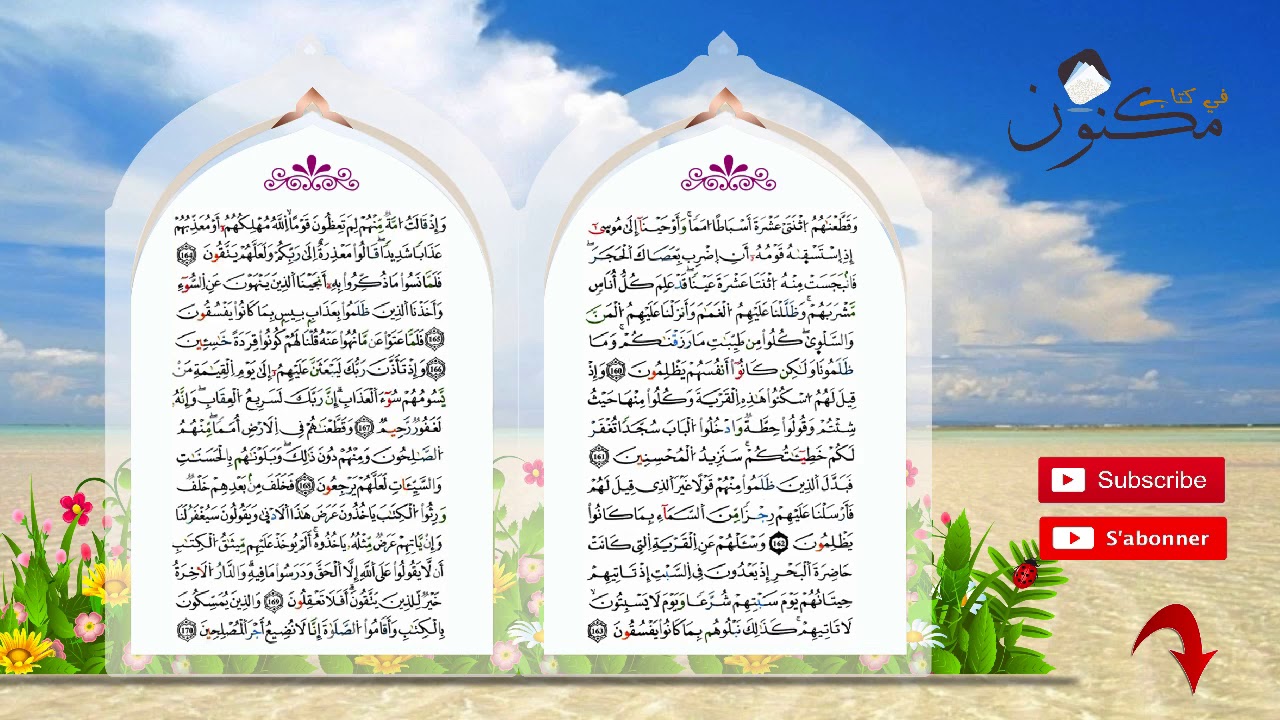 في كتاب
مكنون
وَقَطَّعْنَٰهُمُ اثْنَتَيْ عَشْرَةَ أَسْبَاطًا امَمًا وَأَوْحَيْنَا إِلَىٰ مُوسَىٰ
إِذِ اِسْتَسْقَىٰهُ قَوْمُهُ أَنِ اِضْرِب بِّعَصَاكَ الْحَجَرَ
فَانۢبَجَسَتْ مِنْهُ اثْنَتَا عَشْرَةَ عَيْنًا قَدْ عَلِمَ كُلُّ أُنَاسٍ
مَّشْرَبَهُمْ وَظَلَّلْنَا عَلَيْهِمُ الْغَمَٰمَ وَأَنزَلْنَا عَلَيْهِمُ الْمَنَّ
وَالسَّلْوَىٰ كُلُوا مِن طَيِّبَٰتِ مَا رَزَقْنَٰكُمْ وَمَا
ظَلَمُونَا وَلَٰكِن كَانُوا أَنفُسَهُمْ يَظْلِمُونَ 160 وَإِذْ
قِيلَ لَهُمُ اسْكُنُوا هَٰذِهِ الْقَرْيَةَ وَكُلُوا مِنْهَا حَيْثُ
شِئْتُمْ وَقُولُوا حِطَّةٌ وَادْخُلُوا الْبَابَ سُجَّدًا تُغْفَرْ
لَكُمْ خَطِيٓـَٰٔتُكُمْ سَنَزِيدُ الْمُحْسِنِينَ 161
فَبَدَّلَ الَّذِينَ ظَلَمُوا مِنْهُمْ قَوْلًا غَيْرَ الَّذِي قِيلَ لَهُمْ
فَأَرْسَلْنَا عَلَيْهِمْ رِجْزًا مِّنَ السَّمَآءِ بِمَا كَانُوا
يَظْلِمُونَ 162 وَسْـَٔلْهُمْ عَنِ الْقَرْيَةِ الَّتِي كَانَتْ
حَاضِرَةَ الْبَحْرِ إِذْ يَعْدُونَ فِي السَّبْتِ إِذْ تَاتِيهِمْ
حِيتَانُهُمْ يَوْمَ سَبْتِهِمْ شُرَّعًا وَيَوْمَ لَا يَسْبِتُونَ
لَا تَاتِيهِمْ كَذَٰلِكَ نَبْلُوهُم بِمَا كَانُوا يَفْسُقُونَ 163
وَإِذْ قَالَتُ امَّةٌ مِّنْهُمْ لِمَ تَعِظُونَ قَوْمًا اللَّهُ مُهْلِكُهُمُ أَوْ مُعَذِّبُهُمْ
عَذَابًا شَدِيدًا قَالُوا مَعْذِرَةٌ إِلَىٰ رَبِّكُمْ وَلَعَلَّهُمْ يَتَّقُونَ 164
فَلَمَّا نَسُوا مَا ذُكِّرُوا بِهِ أَنجَيْنَا الَّذِينَ يَنْهَوْنَ عَنِ السُّوٓءِ
وَأَخَذْنَا الَّذِينَ ظَلَمُوا بِعَذَابٍ بِيسٍ بِمَا كَانُوا يَفْسُقُونَ
165 فَلَمَّا عَتَوْا عَن مَّا نُهُوا عَنْهُ قُلْنَا لَهُمْ كُونُوا قِرَدَةً خَٰسِـِٔينَ
166 وَإِذْ تَأَذَّنَ رَبُّكَ لَيَبْعَثَنَّ عَلَيْهِمُ إِلَىٰ يَوْمِ الْقِيَٰمَةِ مَنْ
يَّسُومُهُمْ سُوٓءَ الْعَذَابِ إِنَّ رَبَّكَ لَسَرِيعُ الْعِقَابِ وَإِنَّهُ
لَغَفُورٌ رَّحِيمٌ 167 وَقَطَّعْنَٰهُمْ فِي الْأَرْضِ أُمَمًا مِّنْهُمُ
الصَّٰلِحُونَ وَمِنْهُمْ دُونَ ذَٰلِكَ وَبَلَوْنَٰهُم بِالْحَسَنَٰتِ
وَالسَّيِّـَٔاتِ لَعَلَّهُمْ يَرْجِعُونَ 168 فَخَلَفَ مِنۢ بَعْدِهِمْ خَلْفٌ
وَرِثُوا الْكِتَٰبَ يَاخُذُونَ عَرَضَ هَٰذَا الْأَدْنَىٰ وَيَقُولُونَ سَيُغْفَرُ لَنَا
وَإِنْ يَّاتِهِمْ عَرَضٌ مِّثْلُهُ يَاخُذُوهُ أَلَمْ يُوخَذْ عَلَيْهِم مِّيثَٰقُ الْكِتَٰبِ
أَن لَّا يَقُولُوا عَلَى اللَّهِ إِلَّا الْحَقَّ وَدَرَسُوا مَا فِيهِ وَالدَّارُ الْأَخِرَةُ
خَيْرٌ لِّلَّذِينَ يَتَّقُونَ أَفَلَا تَعْقِلُونَ 169 وَالَّذِينَ يُمَسِّكُونَ
بِالْكِتَٰبِ وَأَقَامُوا الصَّلَوٰةَ إِنَّا لَا نُضِيعُ أَجْرَ الْمُصْلِحِينَ 170
Subscribe
S'abonner